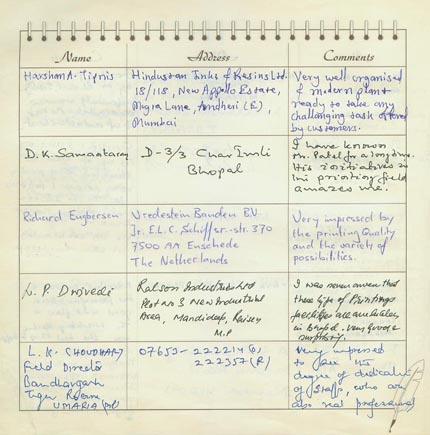 Name Address Comments
Harshan A. Tipnis
Hindustan Inks & Resins Ltd.
18/118, New Apollo Estate,
Mogra Lane, Andheri (E),
Mumbai
Very well organised
& modern plant
ready to take any
challanging task offered
by customers.
D. K. Samantaray
D-3/3 Char Imli
Bhopal
I have known
Mr. Patel for a long time.
His initiatives in
printing field
amazes me.
Richard Engbersen
Vredestein Banden B.V.
Ir. E.L.C. Schiff sr.-str. 370
7500 AA Enschede
The Netherlands
Very impressed by
the printing Quality
and the variety of
possibilities.
P. Dwivedi
Ralson Industries Ltd
Plot no 3 New Industrial
Area, Mandideep, Raisen
M.P
I was never aware that
these type of Printings
facilities are available
in bhopal. very good &
L. K. CHOUDHARY
Field Director
Bandhavgarh
Tiger Reserve,
UMARIA (MP)
07653-222214 (O)
222357 (R)
Very impressed
to see the
degree of dedication
of staffs, who are
also real professional